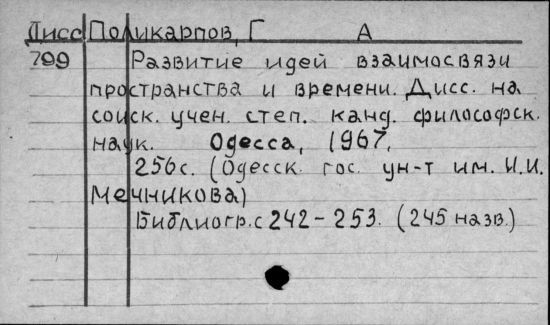 Дисс Поликарпов, Г А
799 Развитие идей взаимосвязи
пространства и времени. Дисс. на
соиск. учен. степ. канд. философск.
наук. Одесса, 1967.
256с. (Одесск. гос. ун-т им. И.И.
Мечникова)
Библиогр. с 242-253. (245 назв.)